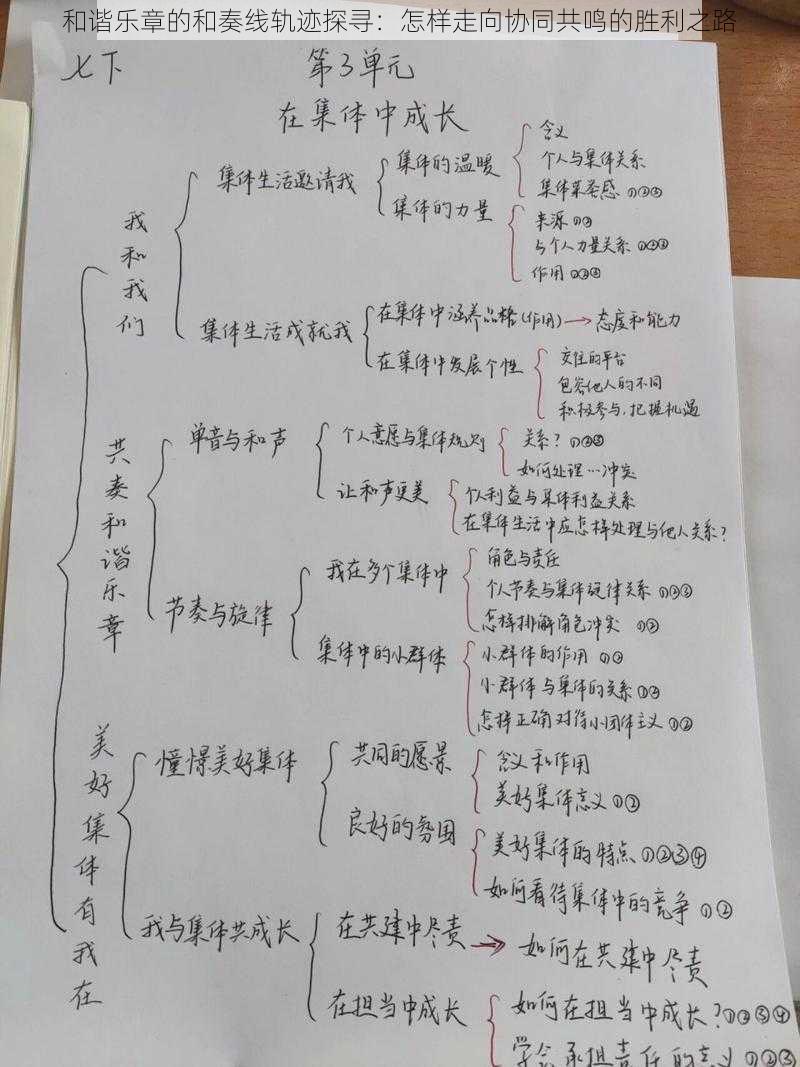 和谐乐章的和奏线轨迹探寻：怎样走向协同共鸣的胜利之路
七下 第3单元
在集体中成长
我和我们
集体生活邀请我
集体的温暖
含义
个人与集体关系
集体荣誉感 ①②③
集体的力量
来源 ①②
与个人力量关系 ①②③
作用 ①②③
集体生活成就我
在集体中涵养品格(作用) → 态度和能力
在集体中发展个性
交往的平台
包容他人的不同
积极参与，把握机遇
共奏和谐乐章
单音与和声
个人意愿与集体规则
关系？①②③
如何处理…冲突
让和声更美
个人利益与集体利益关系
在集体生活中应怎样处理与他人关系？
节奏与旋律
我在多个集体中
角色与责任
个人节奏与集体旋律关系 ①②③
怎样排解角色冲突 ①②
集体中的小群体
小群体的作用 ①②
小群体与集体的关系 ①②
怎样正确对待小团体主义 ①②
美好集体有我在
憧憬美好集体
共同的愿景
含义和作用
美好集体意义 ①②
良好的氛围
美好集体的特点 ①②③④
如何看待集体中的竞争 ①②
我与集体共成长
在共建中尽责 → 如何在共建中尽责
在担当中成长
如何在担当中成长？①②③④
学会承担责任的意义 ①②③